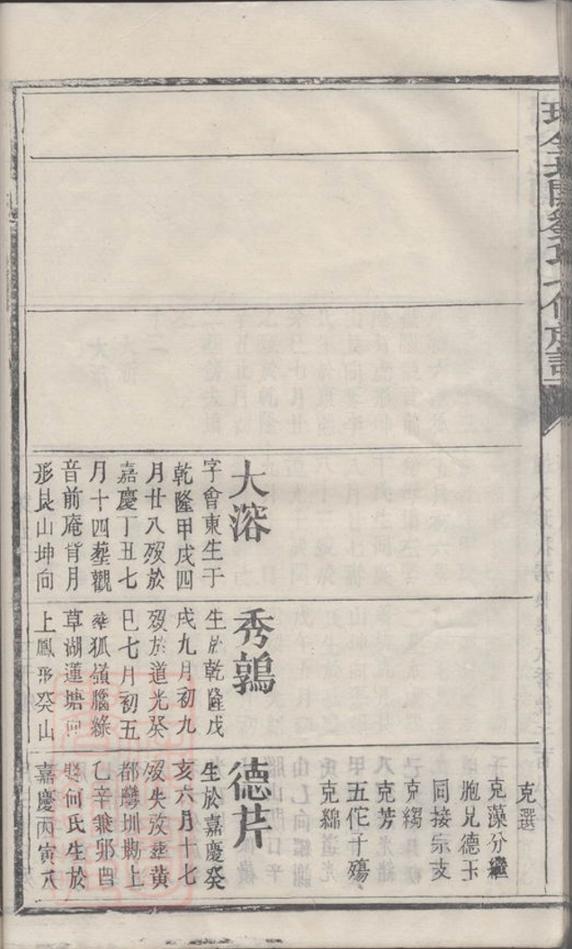 劉氏七修族
大溶
字會東生于
乾隆甲戌四
月廿八歿於
嘉慶丁丑七
月十四葬觀
音前庵背月
形艮山坤向
秀鶉
生於乾隆戊
戌九月初九
歿於道光癸
巳七月初五
葬狐嶺腦綠
草湖蓮塘
上鳳形癸山
克選
克藻分繼
胞兄德玉
同接宗支
克縐
克芳
五佗子殤
克綿
德芹
生於嘉慶癸
亥六月十七
歿失攷塟黄
都灣圳磡上
乙辛兼卯酉
何氏生於
嘉慶丙寅八